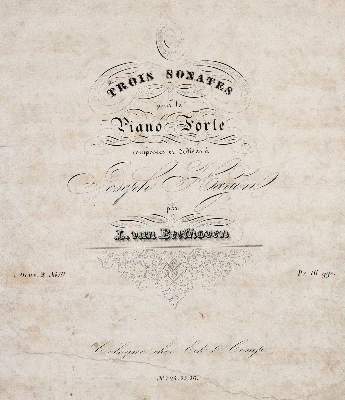 TROIS SONATES
pour le
Piano-Forte
composées et dédiées à
Joseph Haydn
par
L. van Beethoven
Oeuv. 2
Pr. 16 ggr.
Cologne chez